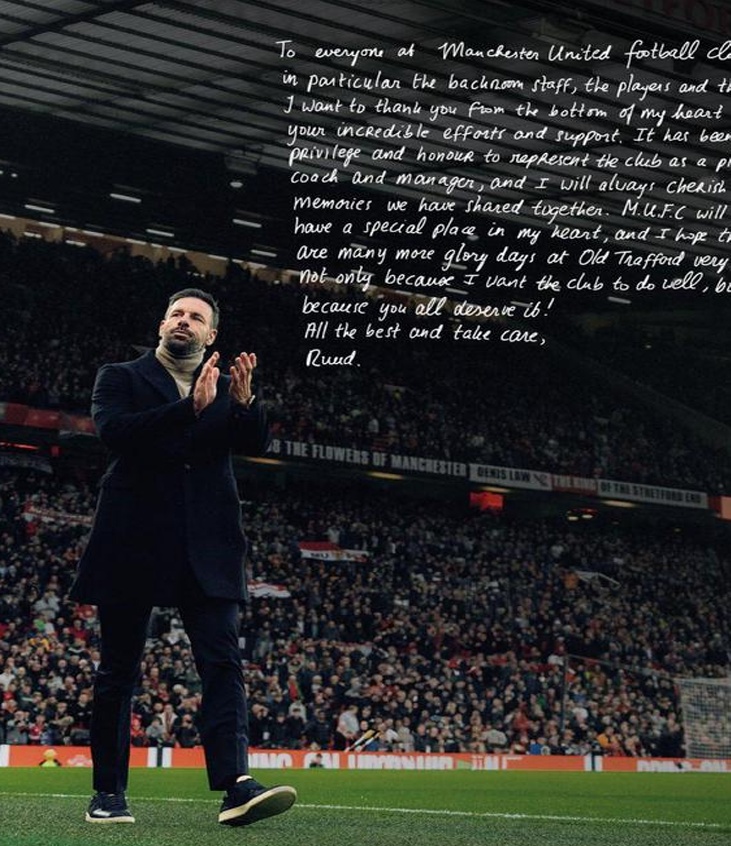 To everyone at Manchester United football clu
in particular the backroom staff, the players and th
I want to thank you from the bottom of my heart
your incredible efforts and support. It has been
privilege and honour to represent the club as a pl
coach and manager, and I will always cherish
memories we have shared together. M.U.F.C will
have a special place in my heart, and I hope th
are many more glory days at Old Trafford very
not only because I want the club to do well, bu
because you all deserve it!
All the best and take care,
Ruud.
8 THE FLOWERS OF MANCHESTER
DENIS LAW
THE KING
OF THE STRETFORD END